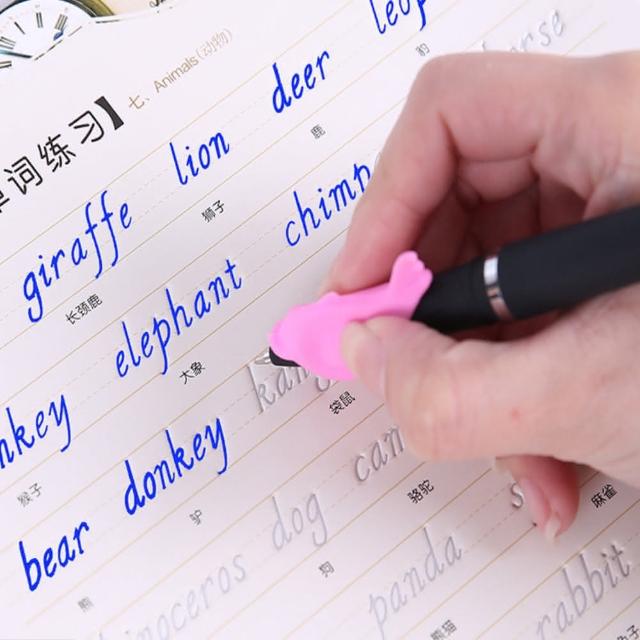 词练习】 七、Animals(动物)
giraffe lion deer
长颈鹿 狮子 鹿 豹
elephant chimp
大象
donkey
猴子 驴 袋鼠
bear dog cam
熊 狗 骆驼 麻雀
panda rabbit
熊猫